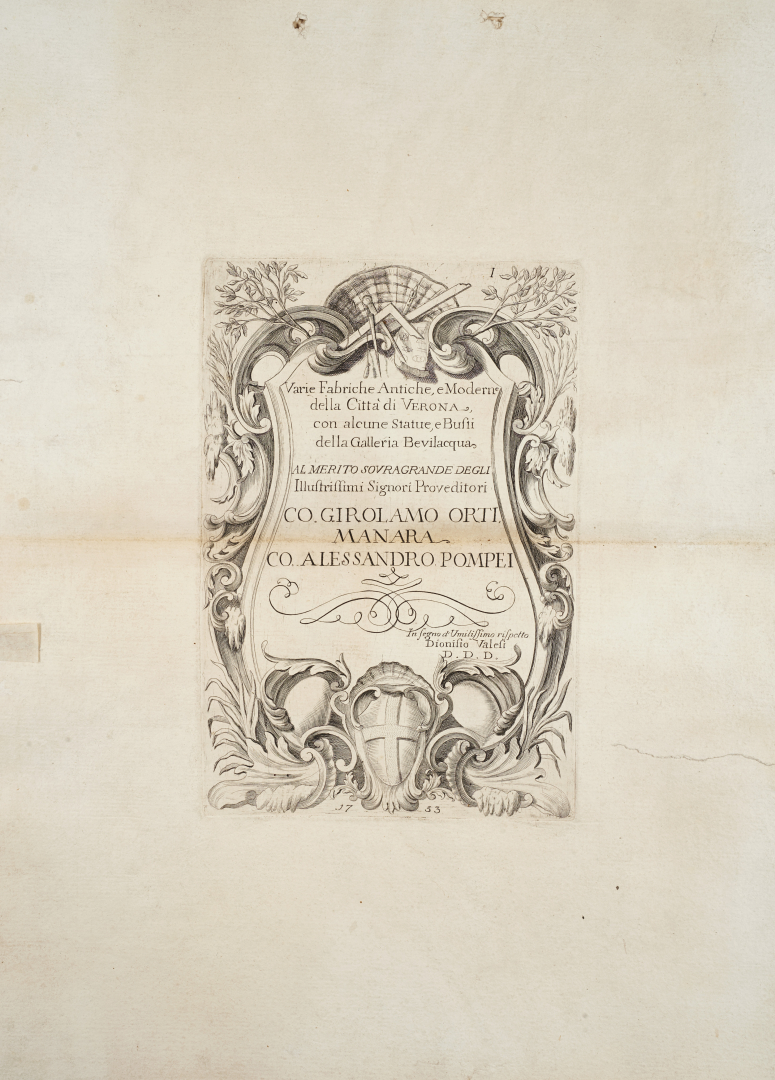 1
Varie Fabriche Antiche, e Moderne
della Città di VERONA,
con alcune Statue, e Busti
della Galleria Bevilacqua,
AL MERITO SOVRAGRANDE DEGLI
Illustrissimi Signori Proveditori
CO. GIROLAMO ORTI
MANARA
CO. ALESSANDRO POMPEI
In segno d'Umilissimo rispetto
Dionisio Valesi
D. D. D.
1753